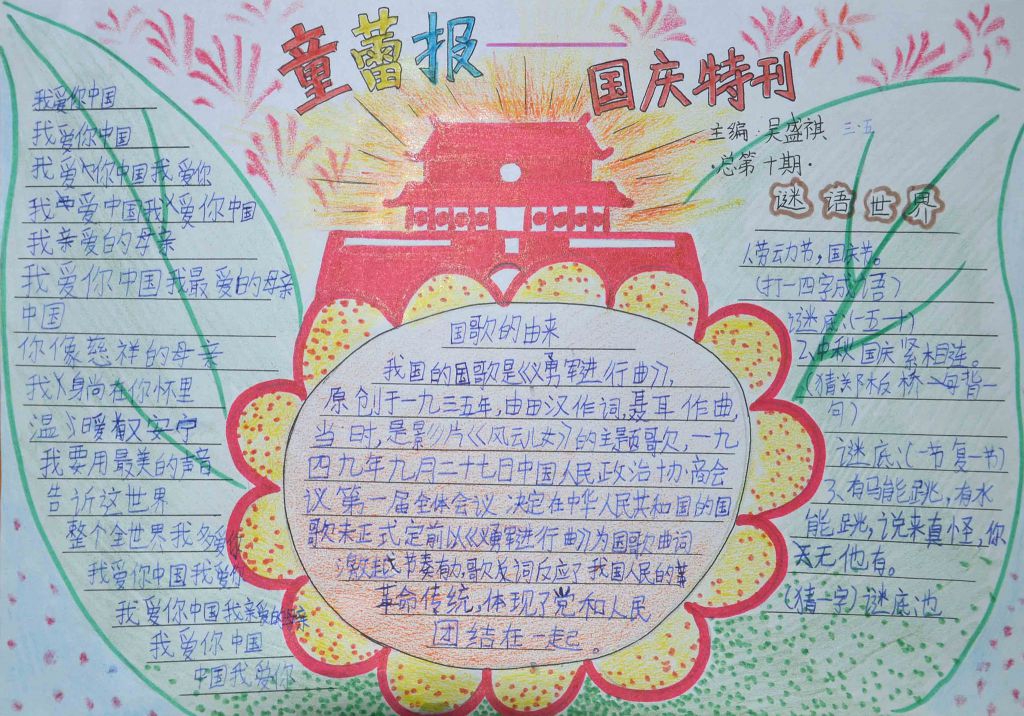 童蕾报
国庆特刊
主编:吴盛祺 三·五
·总第十期·
我爱你中国
我爱你中国
我爱你中国我爱你
我爱中国我爱你中国
我亲爱的母亲
我爱你中国我最爱的母亲
中国
你像慈祥的母亲
我身尚在你怀里
温暖又安宁
我要用最美的声音
告诉这世界
整个全世界我多爱你
我爱你中国我爱你
我爱你中国我亲爱的母亲
我爱你中国
中国我爱你
国歌的由来
我国的国歌是《义勇军进行曲》,
原创于一九三五年,由田汉作词,聂耳作曲,
当时,是影片《风云儿女》的主题歌欠,一九
四九年九月二十七日中国人民政治协商会
议第一届全体会议决定在中华人民共和国的国
歌未正式定前以《义勇军进行曲》为国歌曲词
激越节奏有力,歌词反应了我国人民的革
革命传统,体现了党和人民
团结在一起。
谜语世界
1、劳动节,国庆节。
(打一四字成语)
谜底:(一五一十)
2、中秋国庆紧相连。
(猜郑板桥一每背一
句)
谜底:(一节复一节)
3、有马能跳,有水
能跳,说来真怪,你
无他有。
(猜一字)谜底池